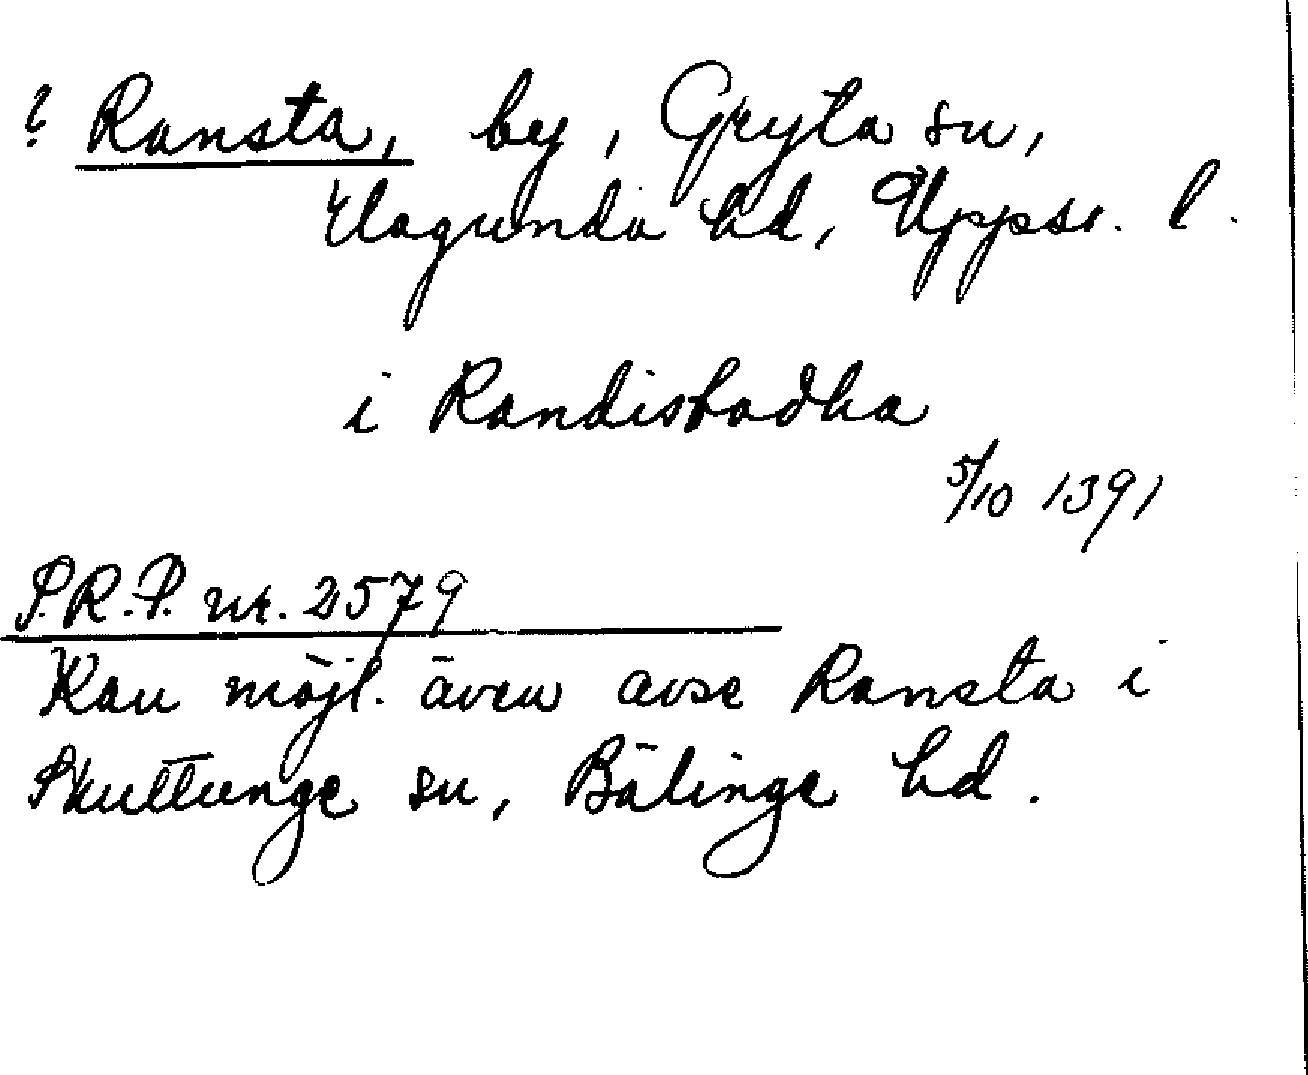 ? Ransta, by, Gryta sn,
Hagunda hd, Upps. l.
i Randisstadha
5/10 1391
S.R.P. nr. 2579
Kan möjl. även avse Ransta i
Skuttunge sn, Bälinge hd.